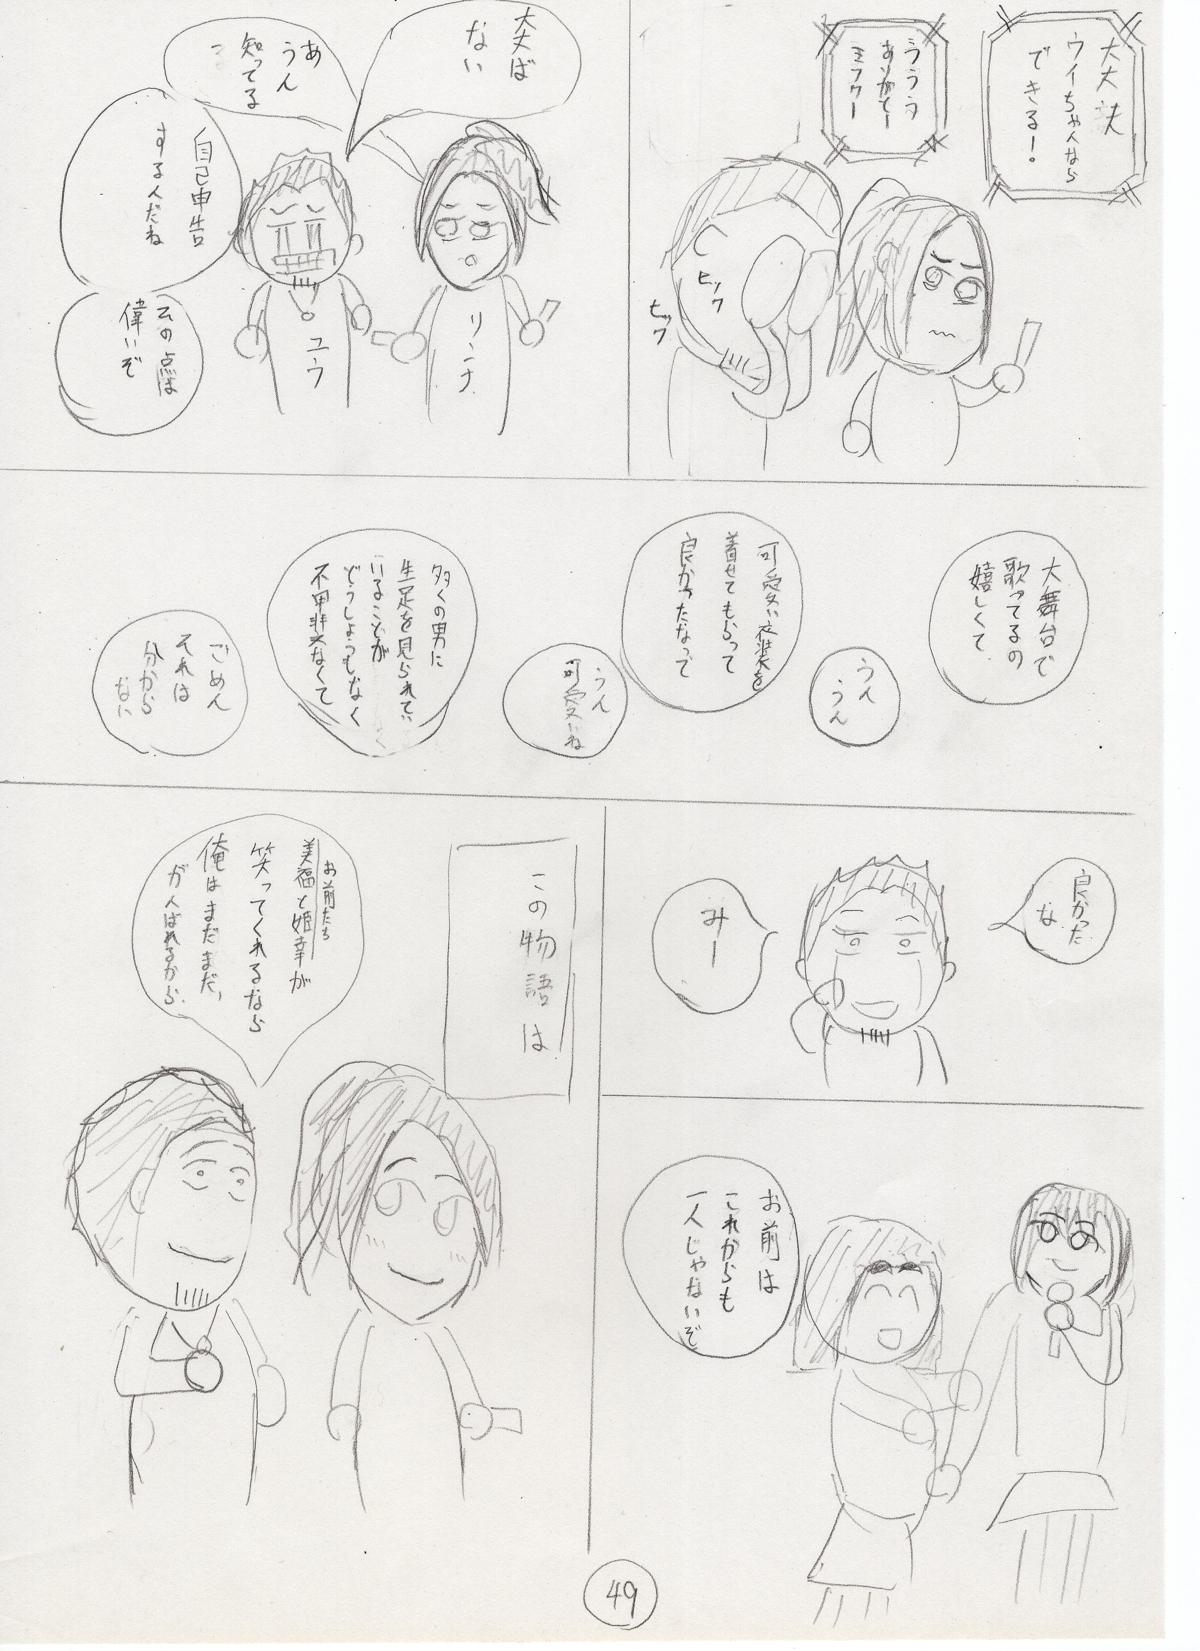 大丈夫
ウイちゃんなら
できる!。
ううう
ありがてー
ミフクー
ヒック
ヒック
大丈ば
ない
あ
うん
知ってる
自己申告
する人だね
その点は
偉いぞ
リンナ
ユウ
大舞台で
歌ってるの
嬉しくて
うん
うん
可愛い衣装を
着せてもらって
良かったなって
うん
可愛いね
多くの男に
生足を見られてい
いることが
どうしようもなく
不甲斐なくて
ごめん
それは
分から
ない
良かった
な
みー
お前は
これからも
一人じゃないぞ
この物語は
お前たち
美福と姫幸が
笑ってくれるなら
俺はまだまだ、
がんばれるから.
49